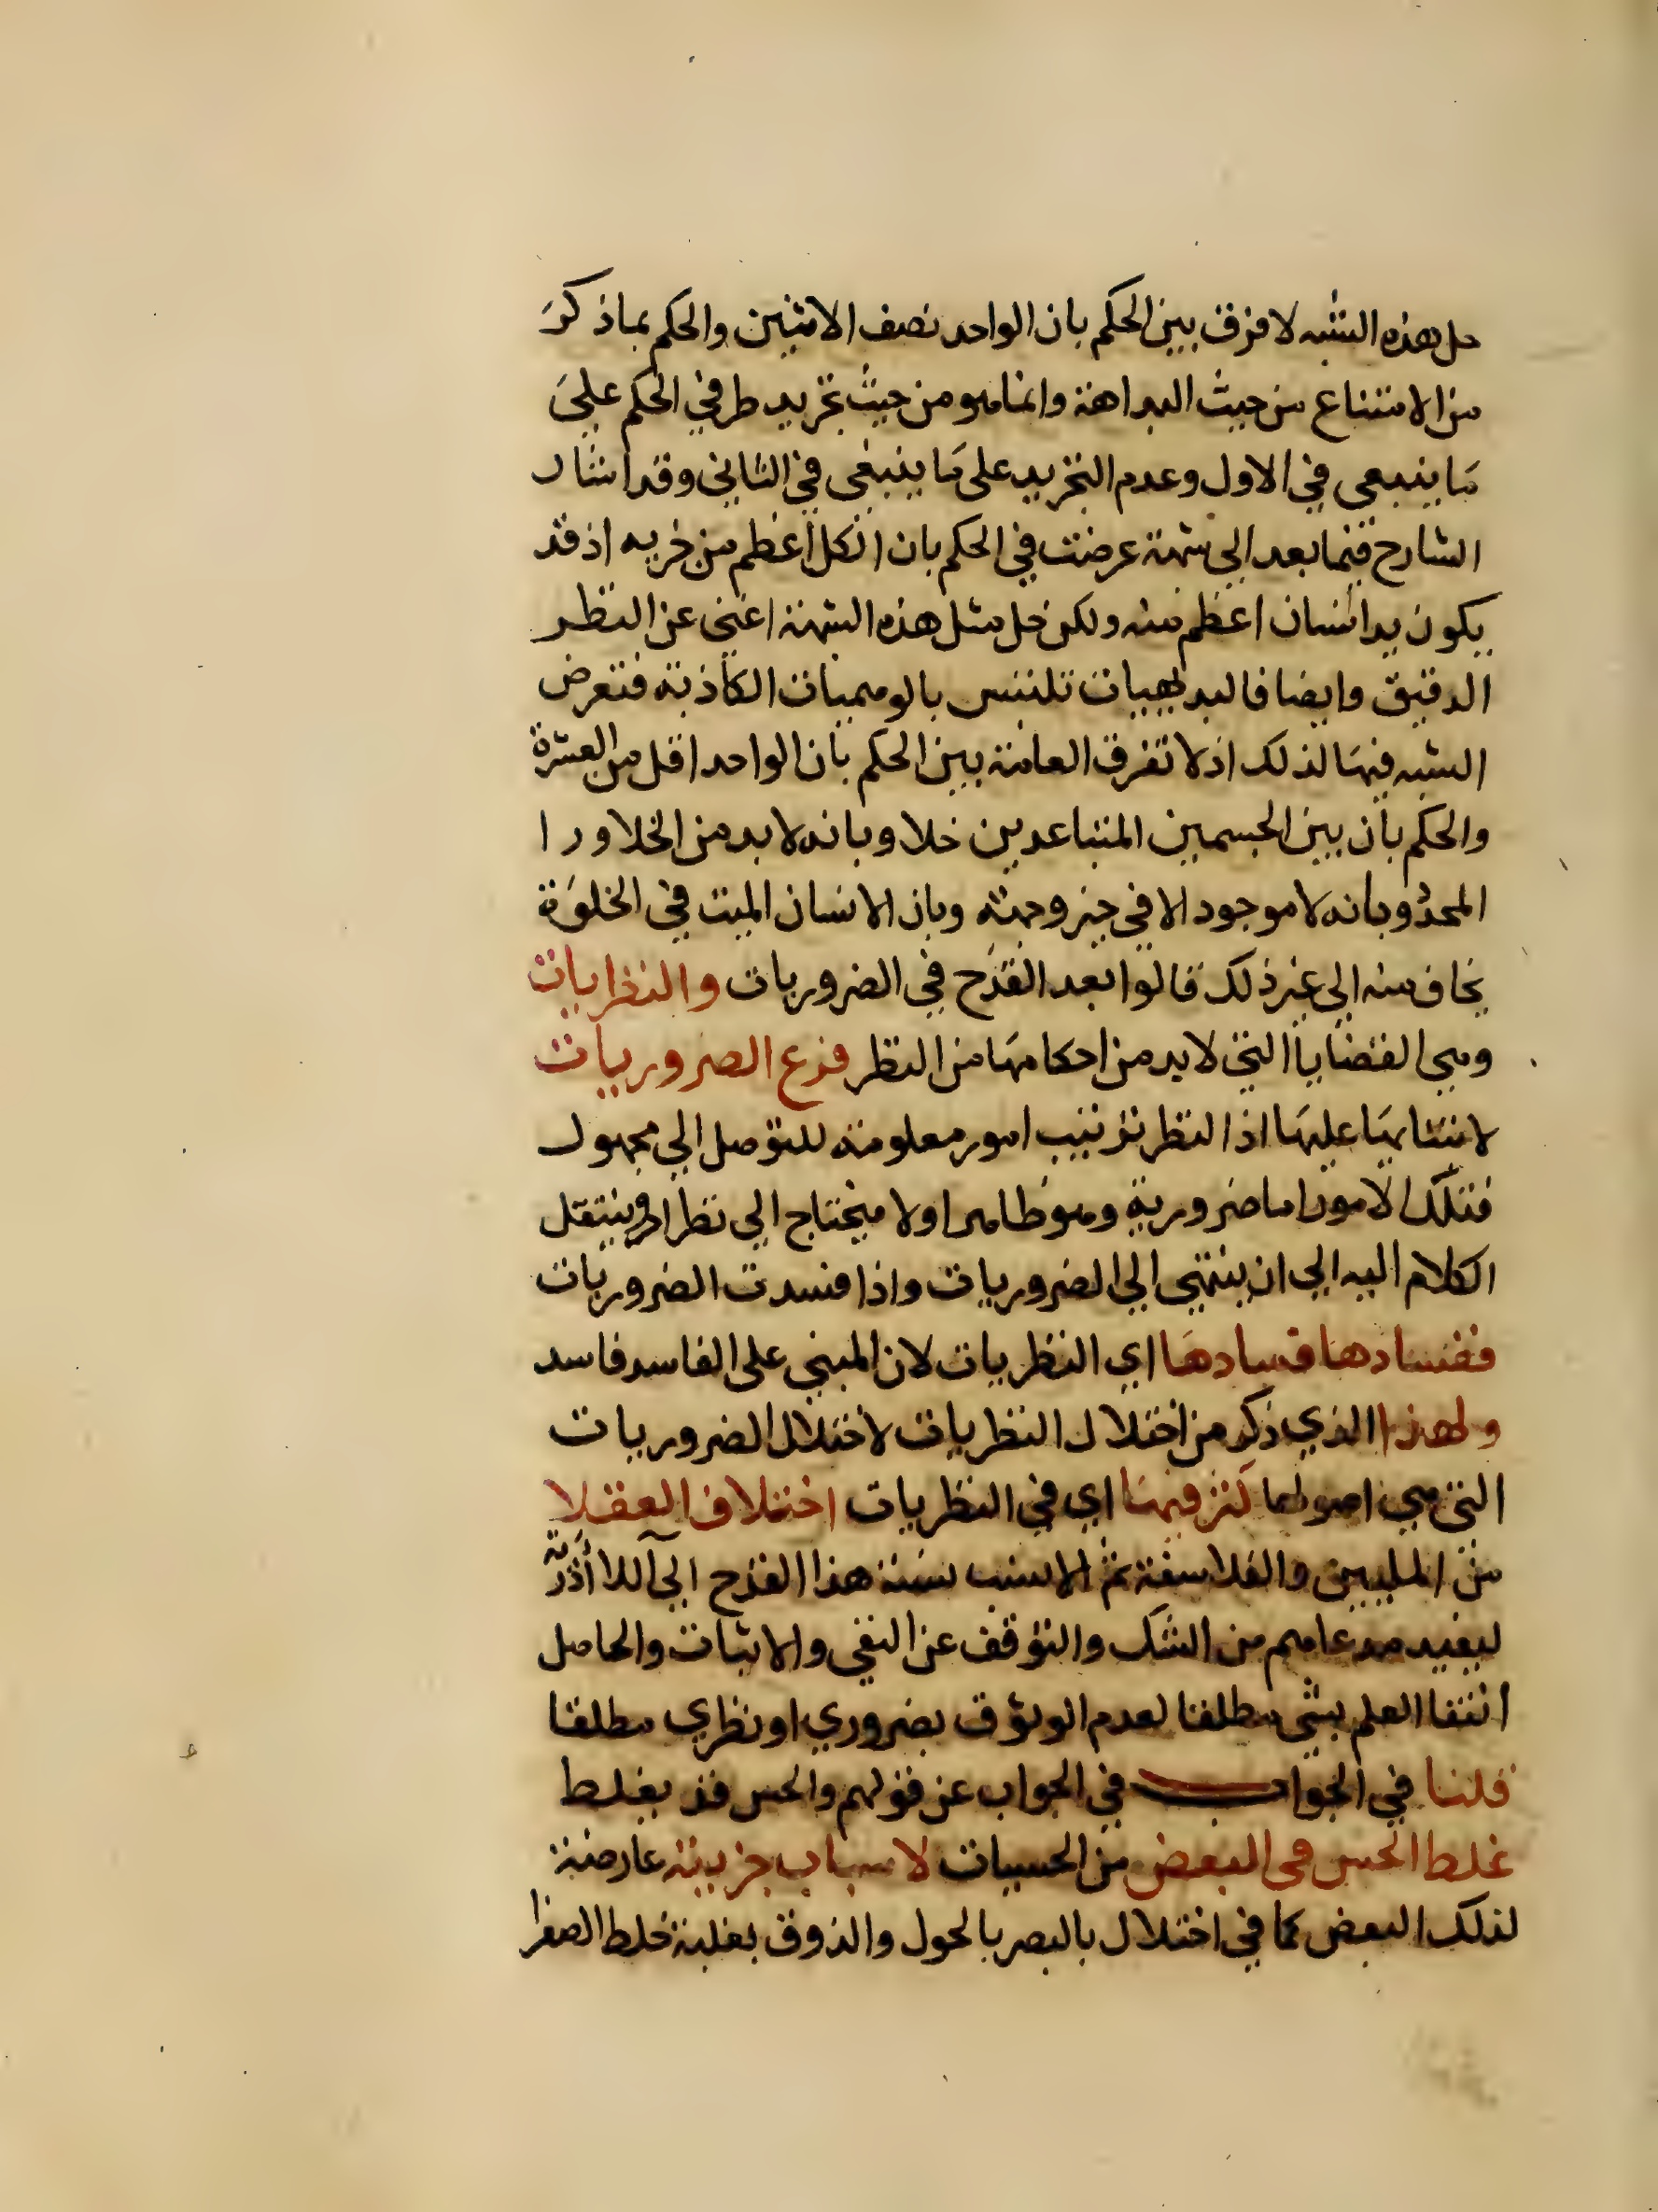 حل هذه الشبه لا فرق بين الحكم بان الواحد نصف الاثنين والحكم بما ذكر
من الامتناع من حيث البداهة وانما هو من حيث تجريد طرفي الحكم على
ما ينبغي في الاول وعدم التجريد على ما ينبغي في الثاني وقد اشار
الشارح فيما بعد الي شبهة عرضت في الحكم بان الكل اعظم من جزيه اذ قد
يكون يد انسان اعظم منه ولكن حل مثل هذه الشبهة اغني عن النظر
الدقيق وايضا فالبديهيات تلتبس بالوهميات الكاذبة فتعرض
الشبه فيها لذلك اذ لا تفرق العامة بين الحكم بان الواحد اقل من العشرة
والحكم بان بين الجسمين المتباعدين خلا وبانه لا بد من الخلا ورا
المحدد وبانه لا موجود الا في حيز وجهة وبان الانسان الميت في الخلوة
يخاف منه الي غير ذلك قالوا بعد القدح في الضروريات والنظرايات
وهي القضايا التي لابد من احكامها من النظر فرع الضروريات
لابتنايها عليها اذ النظر ترتيب امور معلومة للتوصل الي مجهول
فتلك الامور اما ضرورية وهو ظاهر اولا فيحتاج الي نظر اخر وينتقل
الكلام اليه الي ان ينتهي الي الضروريات واذا فسدت الضروريات
ففسادها فسادها اي النظريات لان المبني على الفاسد فاسد
ولهذا الذي ذكر من اختلال النظريات لاختلال الضروريات
التي هي اصولها كثر فيها اي في النظريات اختلاف العقلا
من المليين والفلاسفة ثم الانسب نسبة هذا القدح الي اللا أدرية
ليفيد مدعاهم من الشك والتوقف عن النفي والاثبات والحاصل
انتفا العلم بشي مطلقا لعدم الوثوق بضروري او نظري مطلقا
قلنا في الجواب في الجواب عن قولهم والحس قد يغلط
غلط الحس في البعض من الحسيات لاسباب جزيية عارضة
لذلك البعض كما في اختلال بالبصر بالحول والذوق بغلبة خلط الصفرا